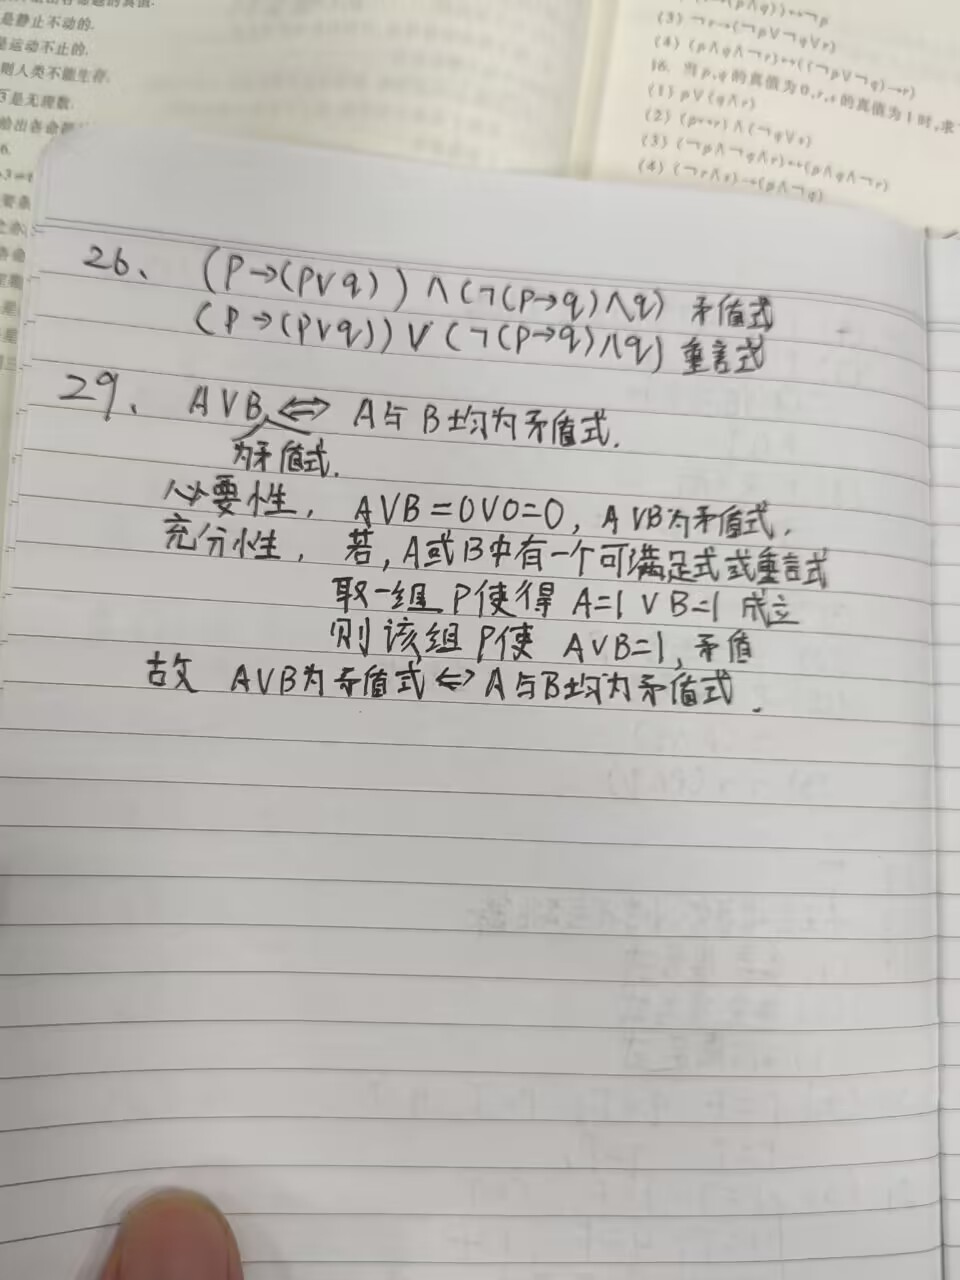 是静止不动的.
是运动不止的.
则人类不能生存.
3是无理数.
给出各命题
6.
(3) ¬r→(¬p∨¬q∨r)
(4) (p∧q∧¬r)↔((¬p∨¬q)→r)
16. 当p,q的真值为0,r,s的真值为1时,求
(1) p∨(q∧r)
(2) (p↔r)∧(¬q∨s)
(3) (¬p∧¬q∧r)↔(p∧q∧¬r)
(4) (¬r∧s)→(p∧¬q)
26、 (P→(P∨q))∧(¬(P→q)∧q) 矛值式
(P→(P∨q))∨(¬(P→q)∧q) 重言式
29、 A∨B ⇔ A与B均为矛值式.
为矛值式.
必要性, A∨B=0∨0=0, A∨B为矛值式.
充分性, 若, A或B中有一个可满足式或重言式
取一组P使得 A=1∨B=1 成立
则该组P使 A∨B=1, 矛值
故 A∨B为矛值式⇔A与B均为矛值式.